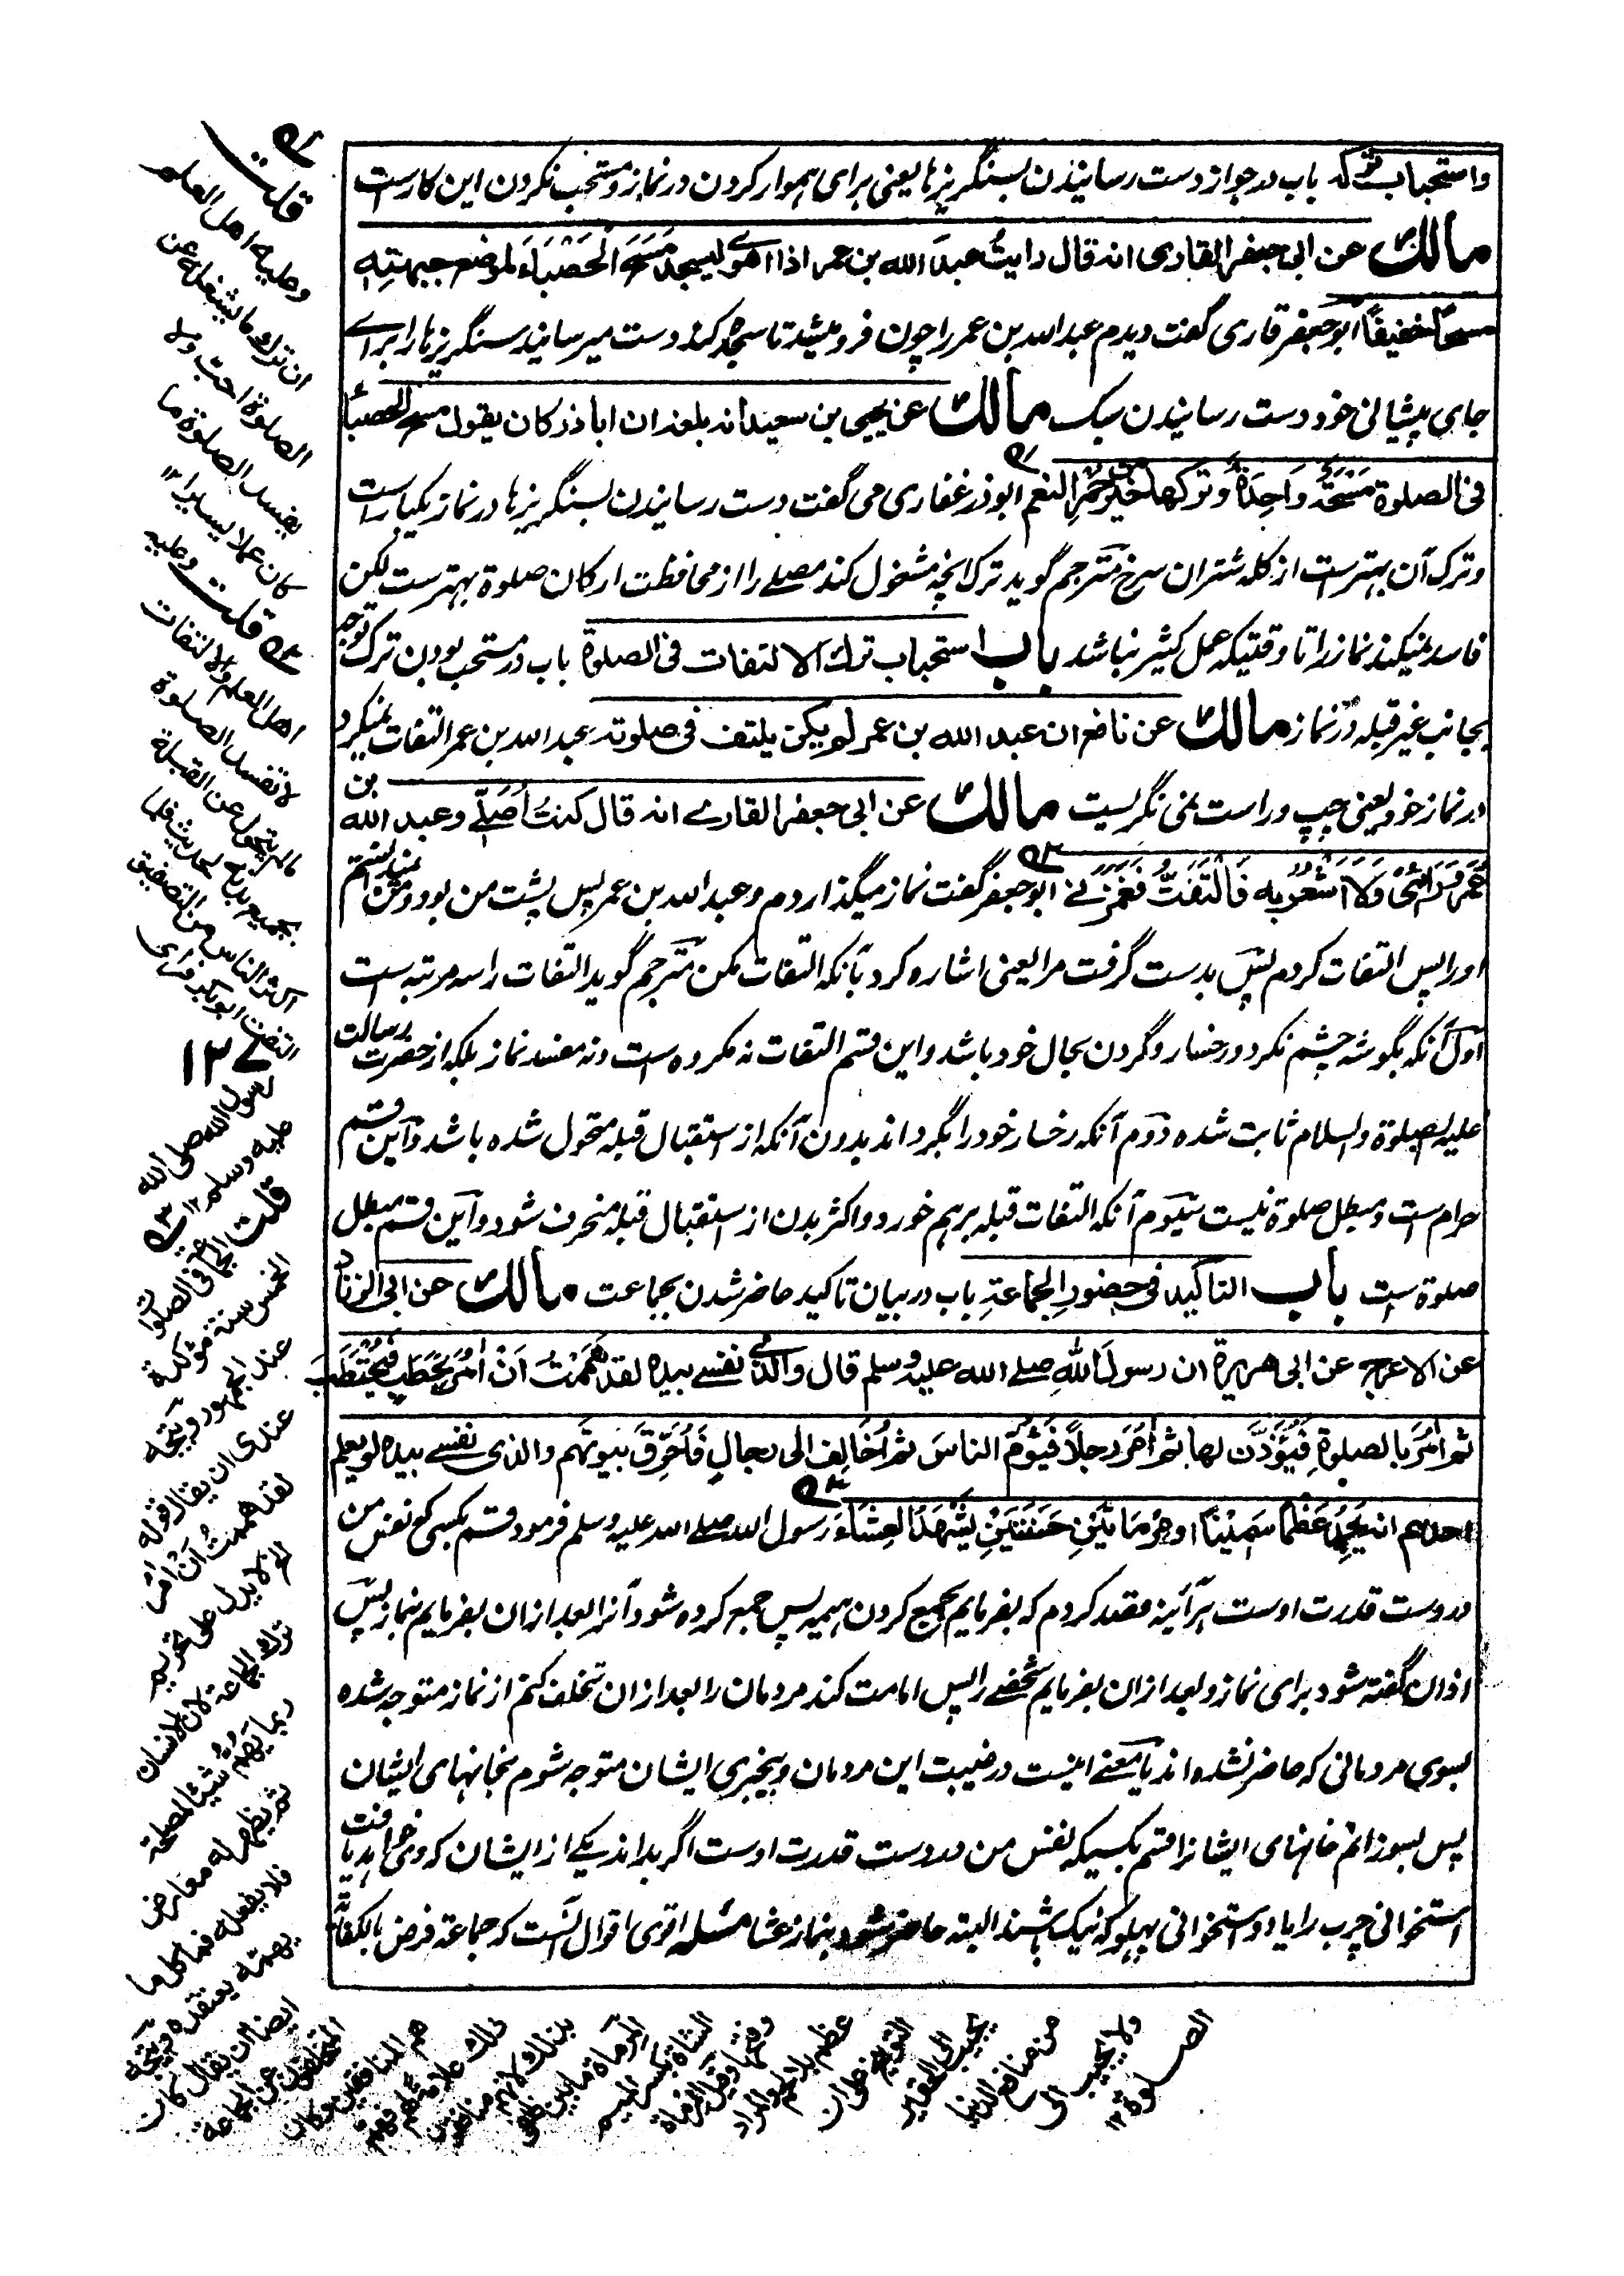 واستحباب ترکه باب در جواز دست رسانیدن بسنگریزها یعنی برای هموار کردن در نماز و مستحب نکردن این کار است
مالك عن ابی جعفر القاری انه قال رایتُ عبدَ الله بن عمر اذا اهوٰے لیسجد مَسَحَ الْحَصْبَاءَ لموضع جبهتِهِ
مسحًا خفیفًا ابو جعفر قاری گفت دیدم عبد الله بن عمر را چون فرو میشد تا سجده کند دست میرسانید سنگریزها را برائے
جای پیشانی خود دست رسانیدن سبک مالك عن یحیی بن سعید انه بلغه ان اباذر کان یقول مسح الحصباء
فی الصلوة مَسْحَةً وَاحِدَةً وترکها خیر من حُمْرِ النعم ابوذر غفاری می گفت دست رسانیدن بسنگریزها در نماز یکبارست
و ترک آن بهترست از کله شتران سرخ مترجم گوید ترک آنچه مشغول کند مصلے را از محافظت ارکان صلوة بهترست لکن
فاسد نمیکند نماز را تا وقتیکه عمل کثیر نباشد باب استحباب ترك الالتفات فی الصلوة باب در مستحب بودن ترک توجه
بجانب غیر قبله در نماز مالك عن نافع ان عبد الله بن عمر لم یکن یلتفت فی صلوته عبد الله بن عمر التفات نمیکرد
در نماز خود یعنی چپ و راست نمی نگریست مالك عن ابی جعفر القارے انه قال کنتُ اُصَلّے وعبد الله بن
عُمَرَ وَرَائِیْ وَلَا اَشْعُرُ بِه فَالْتَفَتُّ فَغَمَزَنِے ابو جعفر گفت نماز میگذاردم و عبد الله بن عمر پس پشت من بود و من نمیدانستم
او را پس التفات کردم پس بدست گرفت مرا یعنی اشاره کرد بآنکه التفات مکن مترجم گوید التفات را سه مرتبه است
اول آنکه بگوشه چشم نگرد و رخسار و گردن بحال خود باشد و این قسم التفات نه مکروه است و نه مفسد نماز بلکه از حضرت رسالت
علیه الصلوة والسلام ثابت شده دوم آنکه رخسار خود را بگرداند بدون آنکه از استقبال قبله متحول شده باشد و این قسم
حرام است و مبطل صلوة نیست سیوم آنکه التفات قبله برهم خورد و اکثر بدن از استقبال قبله منحرف شود و این قسم مبطل
صلوة است باب التاکید فی حضورِ الجماعةِ باب در بیان تاکید حاضر شدن بجماعت مالك عن ابی الزناد
عن الاعرج عن ابی هریرة ان رسولَ اللهِ صلے الله علیه وسلم قال والذی نفسے بیده لقد هَمَمْتُ اَنْ اٰمُرَ بِحَطَبٍ فَیُحْتَطَبَ
ثم اٰمُرَ بالصلوةِ فَیُؤَذَّنَ لها ثم اٰمُرَ رجلًا فَیَؤُمَّ الناسَ ثم اُخَالِفَ الی رجالٍ فَاُحَرِّقَ بیوتَهم والذی نفسے بیده لو یعلم
احدهم انه یَجِدُ عَظْمًا سَمِیْنًا او مِرْمَاتَیْنِ حَسَنَتَیْنِ لَشَهِدَ الْعِشَاءَ رسول الله صلے الله علیه وسلم فرمود قسم بکسی که نفس من
در دست قدرت اوست هر آئینه قصد کردم که بفرمایم بجمع کردن هیمه پس جمع کرده شود آنرا بعد ازان بفرمایم بنماز پس
اذان گفته شود برای نماز و بعد ازان بفرمایم شخصے را پس امامت کند مردمان را بعد ازان تخلف کنم از نماز متوجه شده
بسوی مردمانی که حاضر نشده اند یا معنے اینست در غیبت این مردمان و بیخبری ایشان متوجه شوم بخانهای ایشان
پس بسوزانم خانهای ایشانرا قسم بکسیکه نفس من در دست قدرت اوست اگر بداند یکے از ایشان که وی خواهد یافت
استخوانی چرب را یا دو استخوانی پهلو که نیک باشند البته حاضر شود بنماز عشا مسئله اقوی اقوال آنست که جماعة فرض بالکفایة
قلت
وعلیه اهل العلم
ان ترك ما یشغله عن
الصلوة احب ولا
یفسد الصلوة ما
کان عملا یسیرا ۱۲
قلت وعلیه
اهل العلم والالتفات
لا تفسد الصلوة
ما لم یتحول عن القبلة
بجمیع بدنه لحدیث فلما
اکثر الناس من التصفیق
التفت ابو بکر فرای
رسول الله صلی الله
علیه وسلم ۱۲
قلت الجماعة فی الصلوات
الخمس سنة مؤکدة
عند الجمهور ویتجه
عندی ان یقال قوله
لقد هممت اَنْ اٰمُرَ
الخ لا یدل علی تحریم
ترك الجماعة لان الانسان
ربما یَهُمُّ شیئا لمصلحة
ثم یظهر له معارض
فلا یفعله فما کل ما
یهمّه یعتقده ویتجه
ایضا ان یقال کانت
المتخلفون عن الجماعة
هم المنافقین وکان
ذلك علامة لهم فهم
بذلك لانهم منافقون
المرماة ما بین ظلفی
الشاة بکسر المیم
وفتحها وقیل المرماة
عظم بلا لحم والمراد
التوبیخ علی ان
یجیب الی الحقیر
من منافع الدنیا
ولا یجیب الی
الصلوة ۱۲